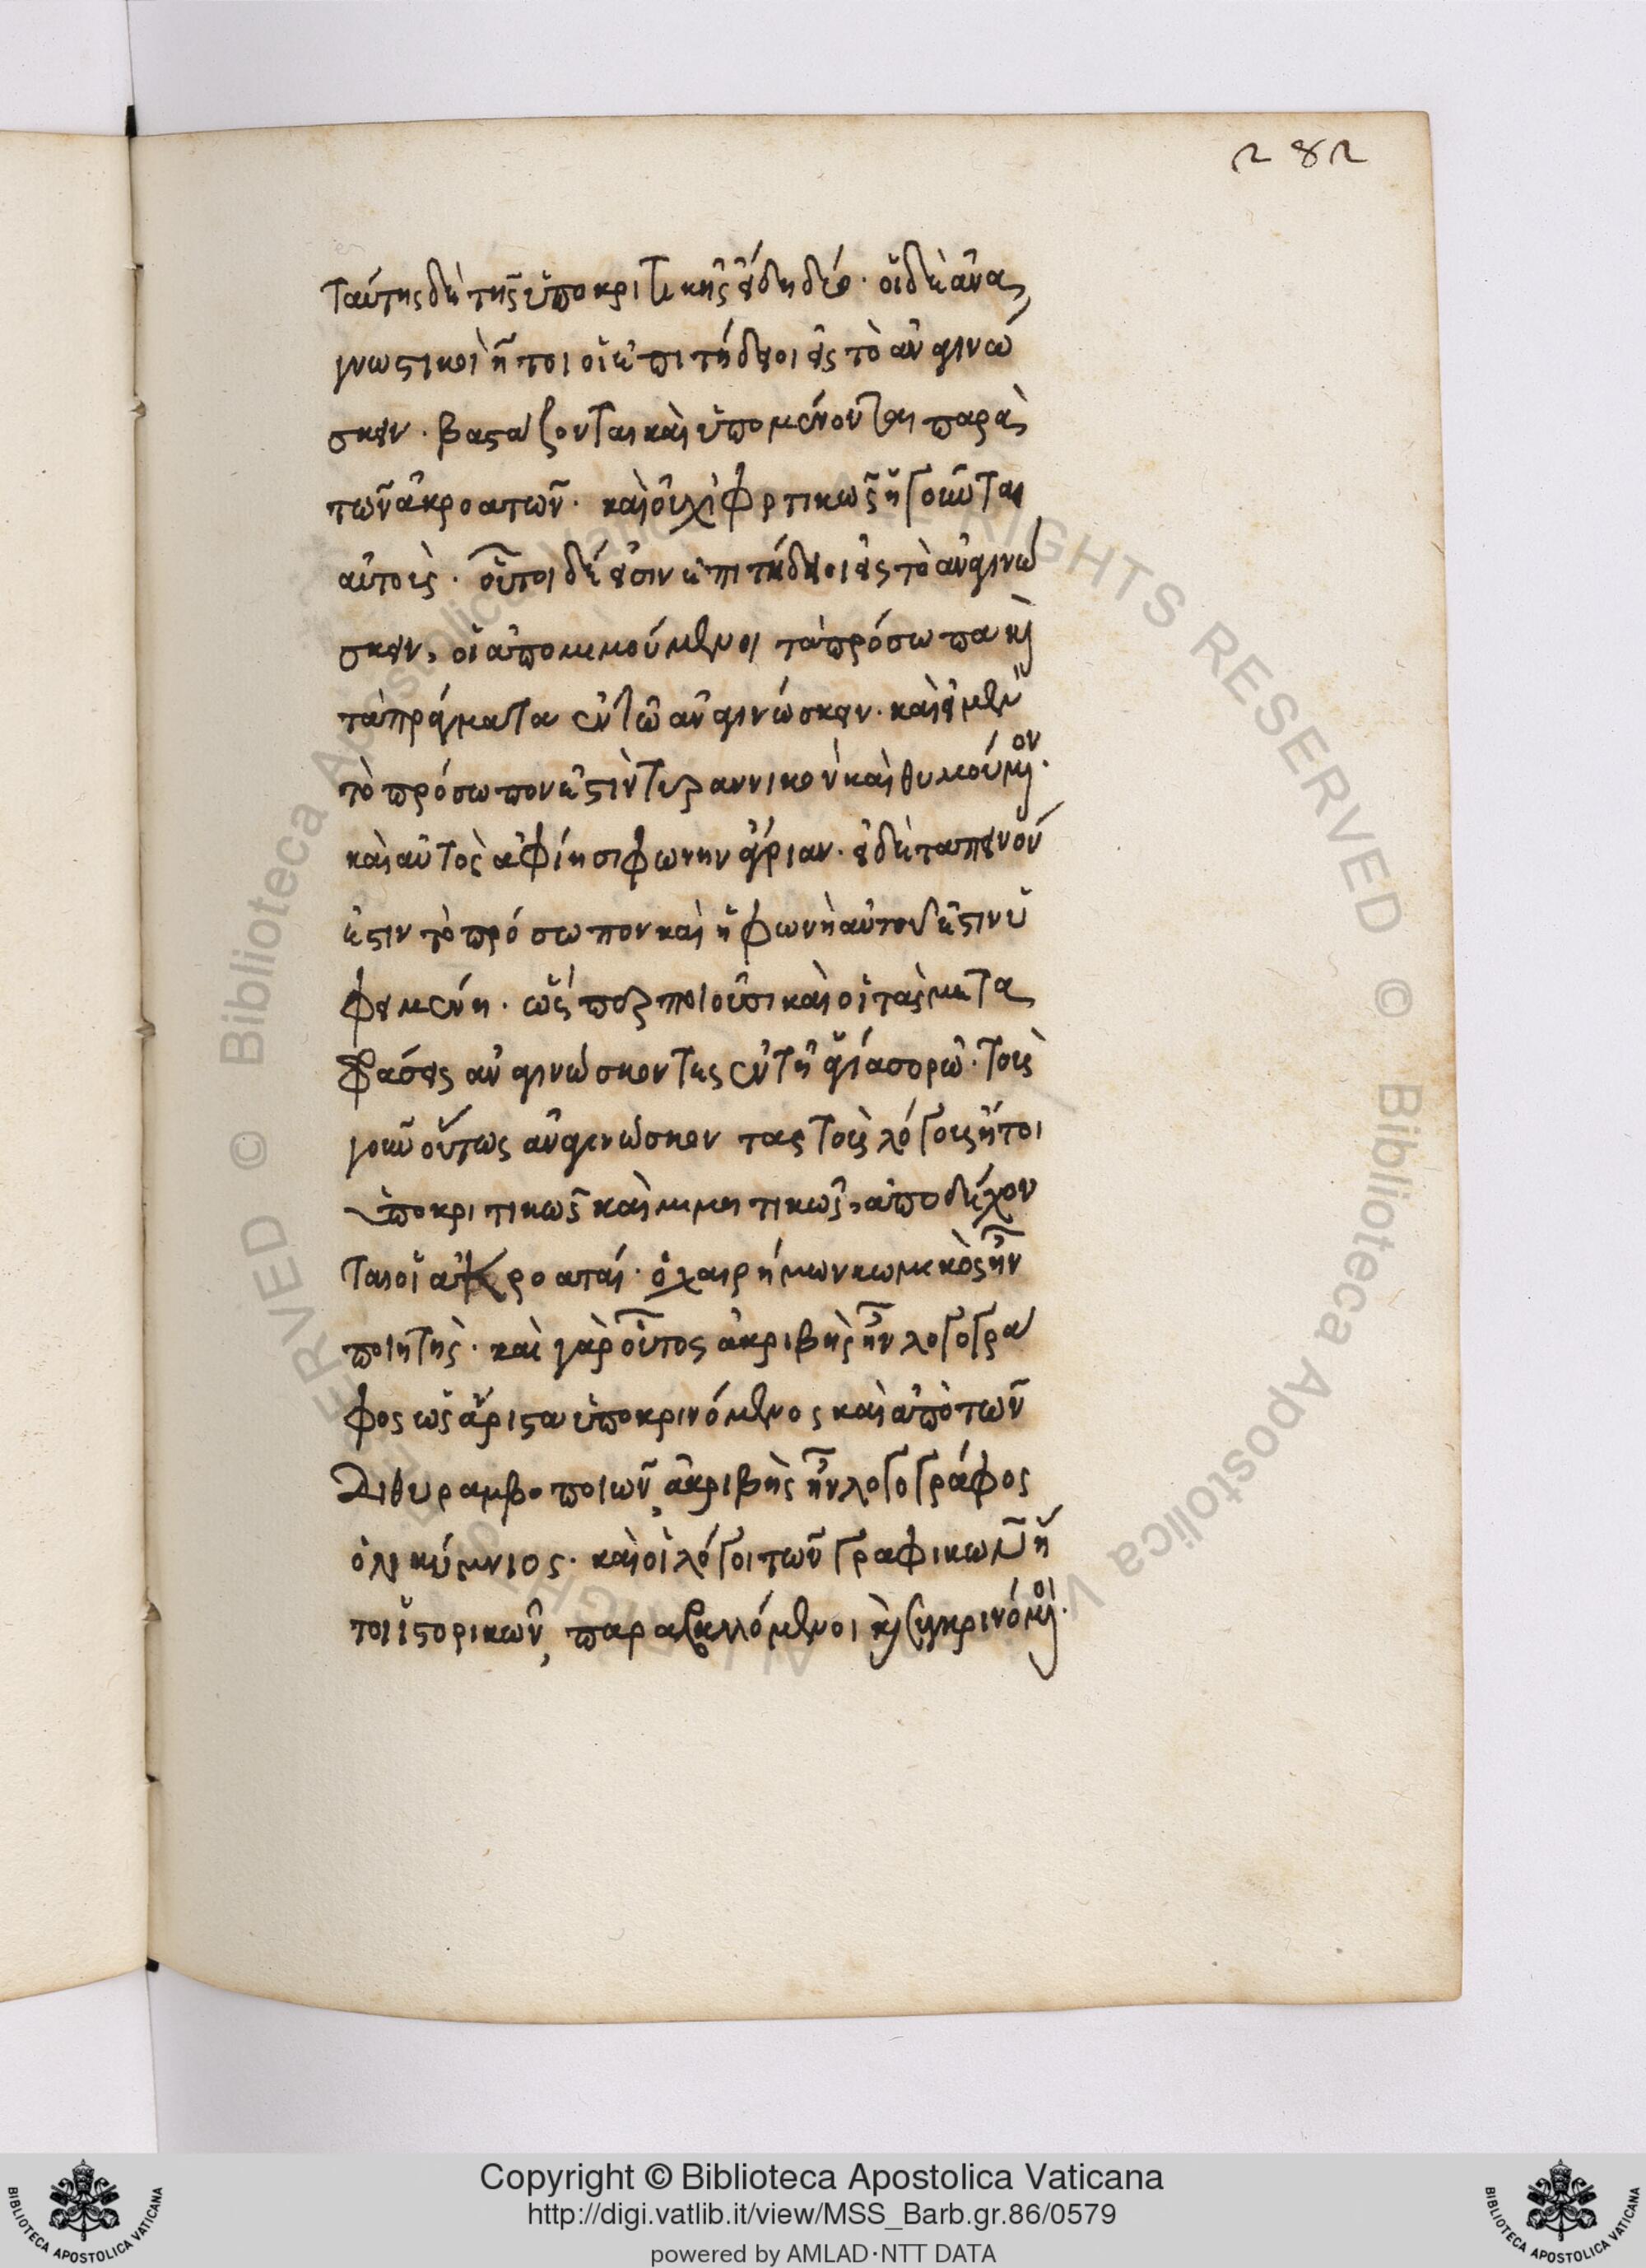 282
ταύτης δὲ τῆς ὑποκριτικῆς εἴδη δύο· οἱ δὲ ἀνα
γνωστικοὶ ἤτοι οἱ ἐπιτήδειοι εἰς τὸ ἀναγινώ
σκειν· βαστάζονται καὶ ὑπομένονται παρὰ
τῶν ἀκροατῶν· καὶ οὐχὶ φορτικῶς ἡγοῦνται
αὐτοῖς· οὗτοι δέ εἰσιν ἐπιτήδειοι εἰς τὸ ἀναγινώ
σκειν, οἱ ἀπομιμούμενοι τὰ πρόσωπα καὶ
τὰ πράγματα ἐν τῷ ἀναγινώσκειν· καὶ εἰ μὲν
τὸ πρόσωπον ἐστὶν τυραννικὸν καὶ θυμούμενον·
καὶ αὐτὸς ἀφίησι φωνὴν ἀγρίαν· εἰ δὲ ταπεινόν
ἐστιν τὸ πρόσωπον καὶ ἡ φωνὴ αὐτοῦ ἐστιν ὑ
φειμένη· ὥσπερ ποιοῦσι καὶ οἱ τὰς μετα
φράσεις ἀναγινώσκοντες ἐν τῇ ἁγίᾳ σορῷ· τοὺς
γοῦν οὕτως ἀναγινώσκοντας τοὺς λόγους ἤτοι
ὑποκριτικῶς καὶ μιμητικῶς, ἀποδέχον
ται οἱ ἀκροαταί· ὁ χαιρήμων κωμικὸς ἦν
ποιητής· καὶ γὰρ οὗτος ἀκριβὴς ἦν λογογρά
φος ὡς ἄριστα ὑποκρινόμενος καὶ ἀπὸ τῶν
διθυραμβοποιῶν, ἀκριβὴς ἦν λογογράφος
ὁ λικύμνιος· καὶ οἱ λόγοι τῶν γραφικῶν ἤ
τοι ἱστορικῶν, παραβαλλόμενοι καὶ συγκρινόμενοι·
Copyright © Biblioteca Apostolica Vaticana
http://digi.vatlib.it/view/MSS_Barb.gr.86/0579
powered by AMLAD·NTT DATA